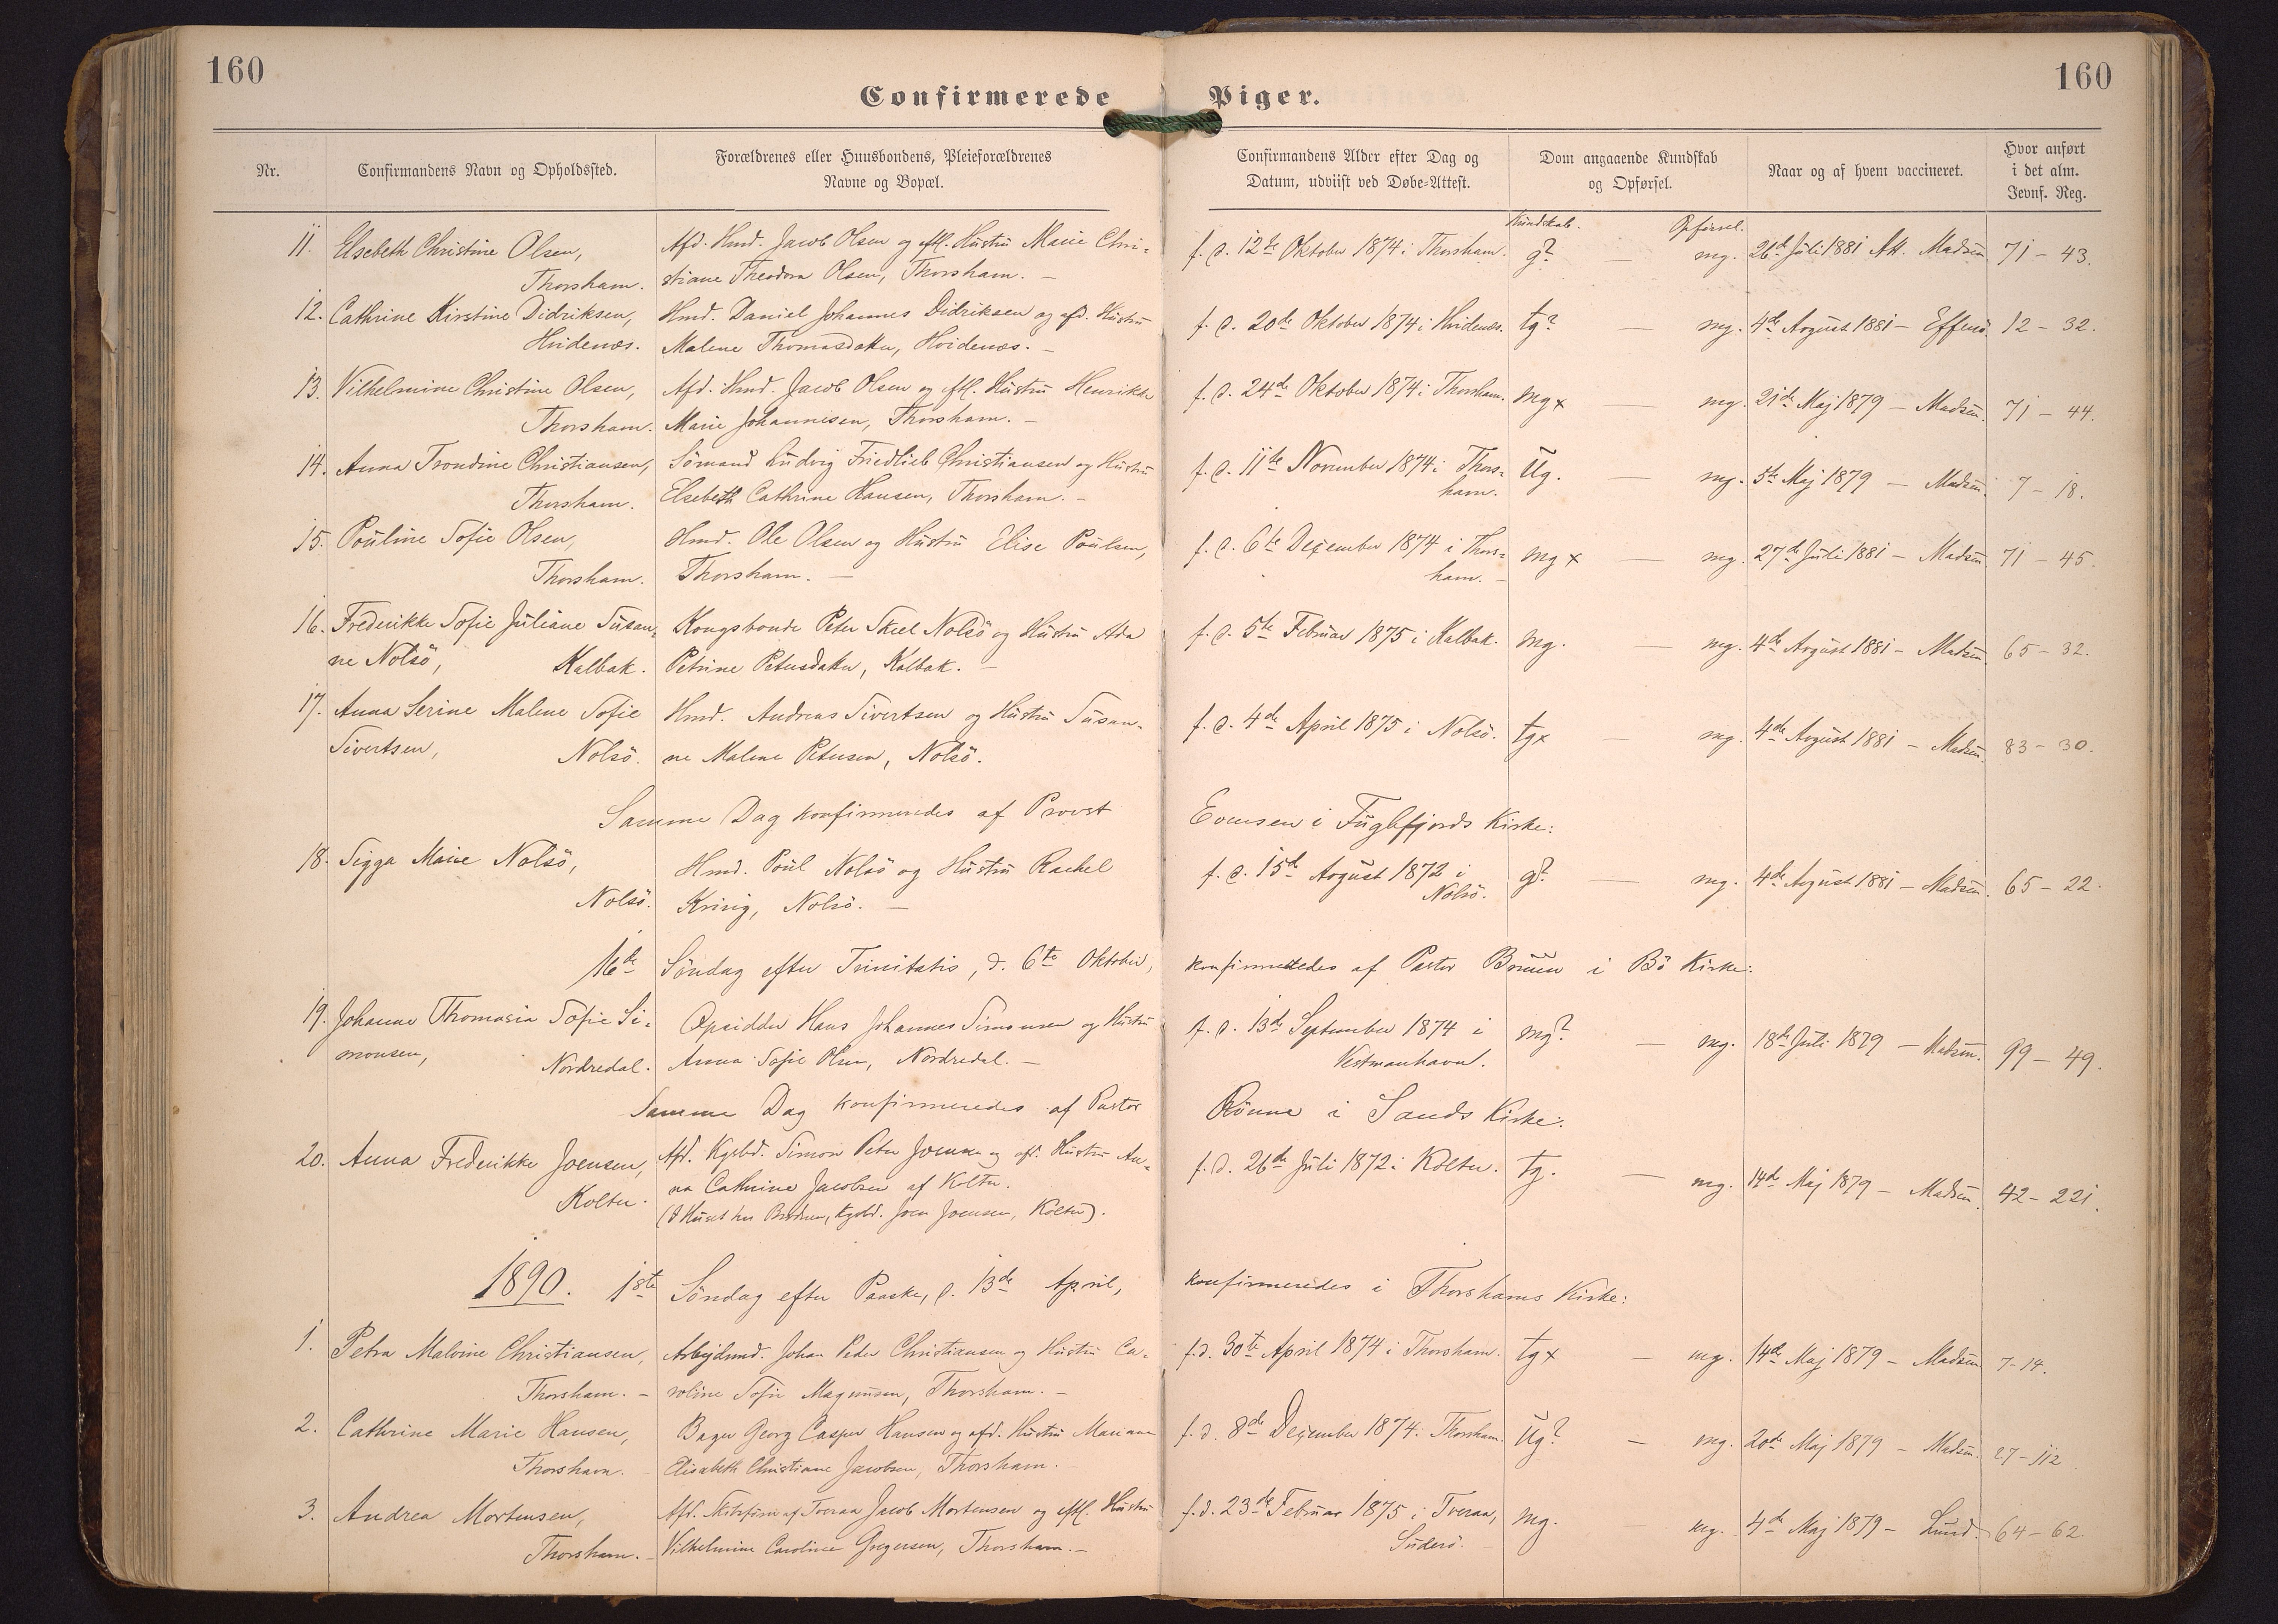 160
160
Confirmerede Piger.
Nr.
Confirmandens Navn og Opholdssted.
Forældrenes eller Huusbondens, Pleieforældrenes
Navne og Bopæl.
Confirmandens Alder efter Dag og
Datum, udviist ved Døbe-Attest.
Dom angaaende Kundskab
og Opførsel.
Naar og af hvem vaccineret.
Hvor anført
i det alm.
Jevnf. Reg.
Kundskab. Opførsel.
11. Elsebeth Christine Olsen, Afd. Hmd. Jacob Olsen og eftl. Hustru Marie Chri- f. d. 12te Oktober 1874 i Thorshavn. g? — mg. 26de Juli 1881 Att. Madsen 71 - 43.
Thorshavn. stiane Theodora Olsen, Thorshavn. —
12. Cathrine Kirstine Didriksen, Hmd. Daniel Johannes Didriksen og afd. Hustru f. d. 20de Oktober 1874 i Hvidenæs. tg? — mg. 4de August 1881 — Effersö. 12 - 32.
Hvidenæs. Malene Thomasdatter, Hvidenæs. —
13. Vilhelmine Christine Olsen, Afd. Hmd. Jacob Olsen og eftl. Hustru Henrikke f. d. 24de Oktober 1874 i Thorshavn. mg x — mg. 21de Maj 1879 — Madsen. 71 - 44.
Thorshavn. Marie Johannesen, Thorshavn. —
14. Anna Trondine Christiansen, Sömand Ludvig Friedlieb Christiansen og Hustru f. d. 11te November 1874 i Thors- ug. — mg. 5te Maj 1879 — Madsen. 7 - 18.
Thorshavn. Elsebeth Cathrine Hansen, Thorshavn. — havn.
15. Pouline Sofie Olsen, Hmd. Ole Olsen og Hustru Elise Poulsen, f. d. 6te December 1874 i Thors- mg x — mg. 27de Juli 1881 — Madsen 71 - 45.
Thorshavn. Thorshavn. — havn. —
16. Frederikke Sofie Juliane Susan- Kongsbonde Peter Skeel Nolsö og Hustru Ada f. d. 5te Februar 1875 i Kalbak. mg. — mg. 4de August 1881 — Madsen. 65 - 32.
ne Nolsö, Kalbak. Petrine Petersdatter, Kalbak. —
17. Anna Serine Malene Sofie Hmd. Andreas Sivertsen og Hustru Susan- f. d. 4de April 1875 i Nolsö. tg x — mg. 4de August 1881 — Madsen. 83 - 30.
Sivertsen, Nolsö. ne Malene Petersen, Nolsö.
Samme Dag konfirmeredes af Provst Evensen i Fuglefjords Kirke:
18. Sigga Marie Nolsö, Hmd. Poul Nolsö og Hustru Rachel f. d. 15de August 1872 i g? — mg. 4de August 1881 — Madsen. 65 - 22.
Nolsö. Nolsö. — Nolsö.
16de Söndag efter Trinitatis, d. 6te Oktober, konfirmeredes af Pastor Bruun i Bö Kirke:
19. Johanne Thomasia Sofie Si- Opsidder Hans Johannes Simonsen og Hustru f. d. 13de September 1874 i mg? — mg. 18de Juli 1879 — Madsen. 99 - 49.
monsen, Nordredal. Anna Sofie Olsen, Nordredal. — Vestmanhavn.
Samme Dag konfirmeredes af Pastor Rönne i Sands Kirke:
20. Anna Frederikke Joensen, Afd. Kgsbd. Simon Peter Joensen og afd. Hustru An- f. d. 26de Juli 1872 i Kolter. tg. — mg. 14de Maj 1879 — Madsen. 42 - 221.
Kolter. na Cathrine Jacobsen af Kolter.
(I Huset hos Broderen, Kgsbd. Joen Joensen, Kolter).
1890. 1ste Söndag efter Paaske, d. 13de April, konfirmeredes i Thorshavns Kirke:
1. Petra Malvine Christiansen, Arbejdsmd. Johan Peder Christiansen og Hustru Ca- f. d. 30te April 1874 i Thorshavn. tg x — mg. 14de Maj 1879 — Madsen 7 - 14.
Thorshavn. — roline Sofie Magnusen, Thorshavn. —
2. Cathrine Marie Hansen, Bager Georg Casper Hansen og afd. Hustru Mariane f. d. 8de December 1874 i Thorshavn. ug? — mg. 20de Maj 1879 — Madsen. 27 - 112
Thorshavn. Elisabeth Christiane Jacobsen, Thorshavn. —
3. Andrea Mortensen, Afd. af Tveraa Jacob Mortensen og eftl. Hustru f. d. 23de Februar 1875 i Tveraa, mg. — mg. 4de Maj 1879 — Lund. 64 - 62.
Thorshavn. — Vilhelmine Caroline Gregersen, Thorshavn. — Suderö.